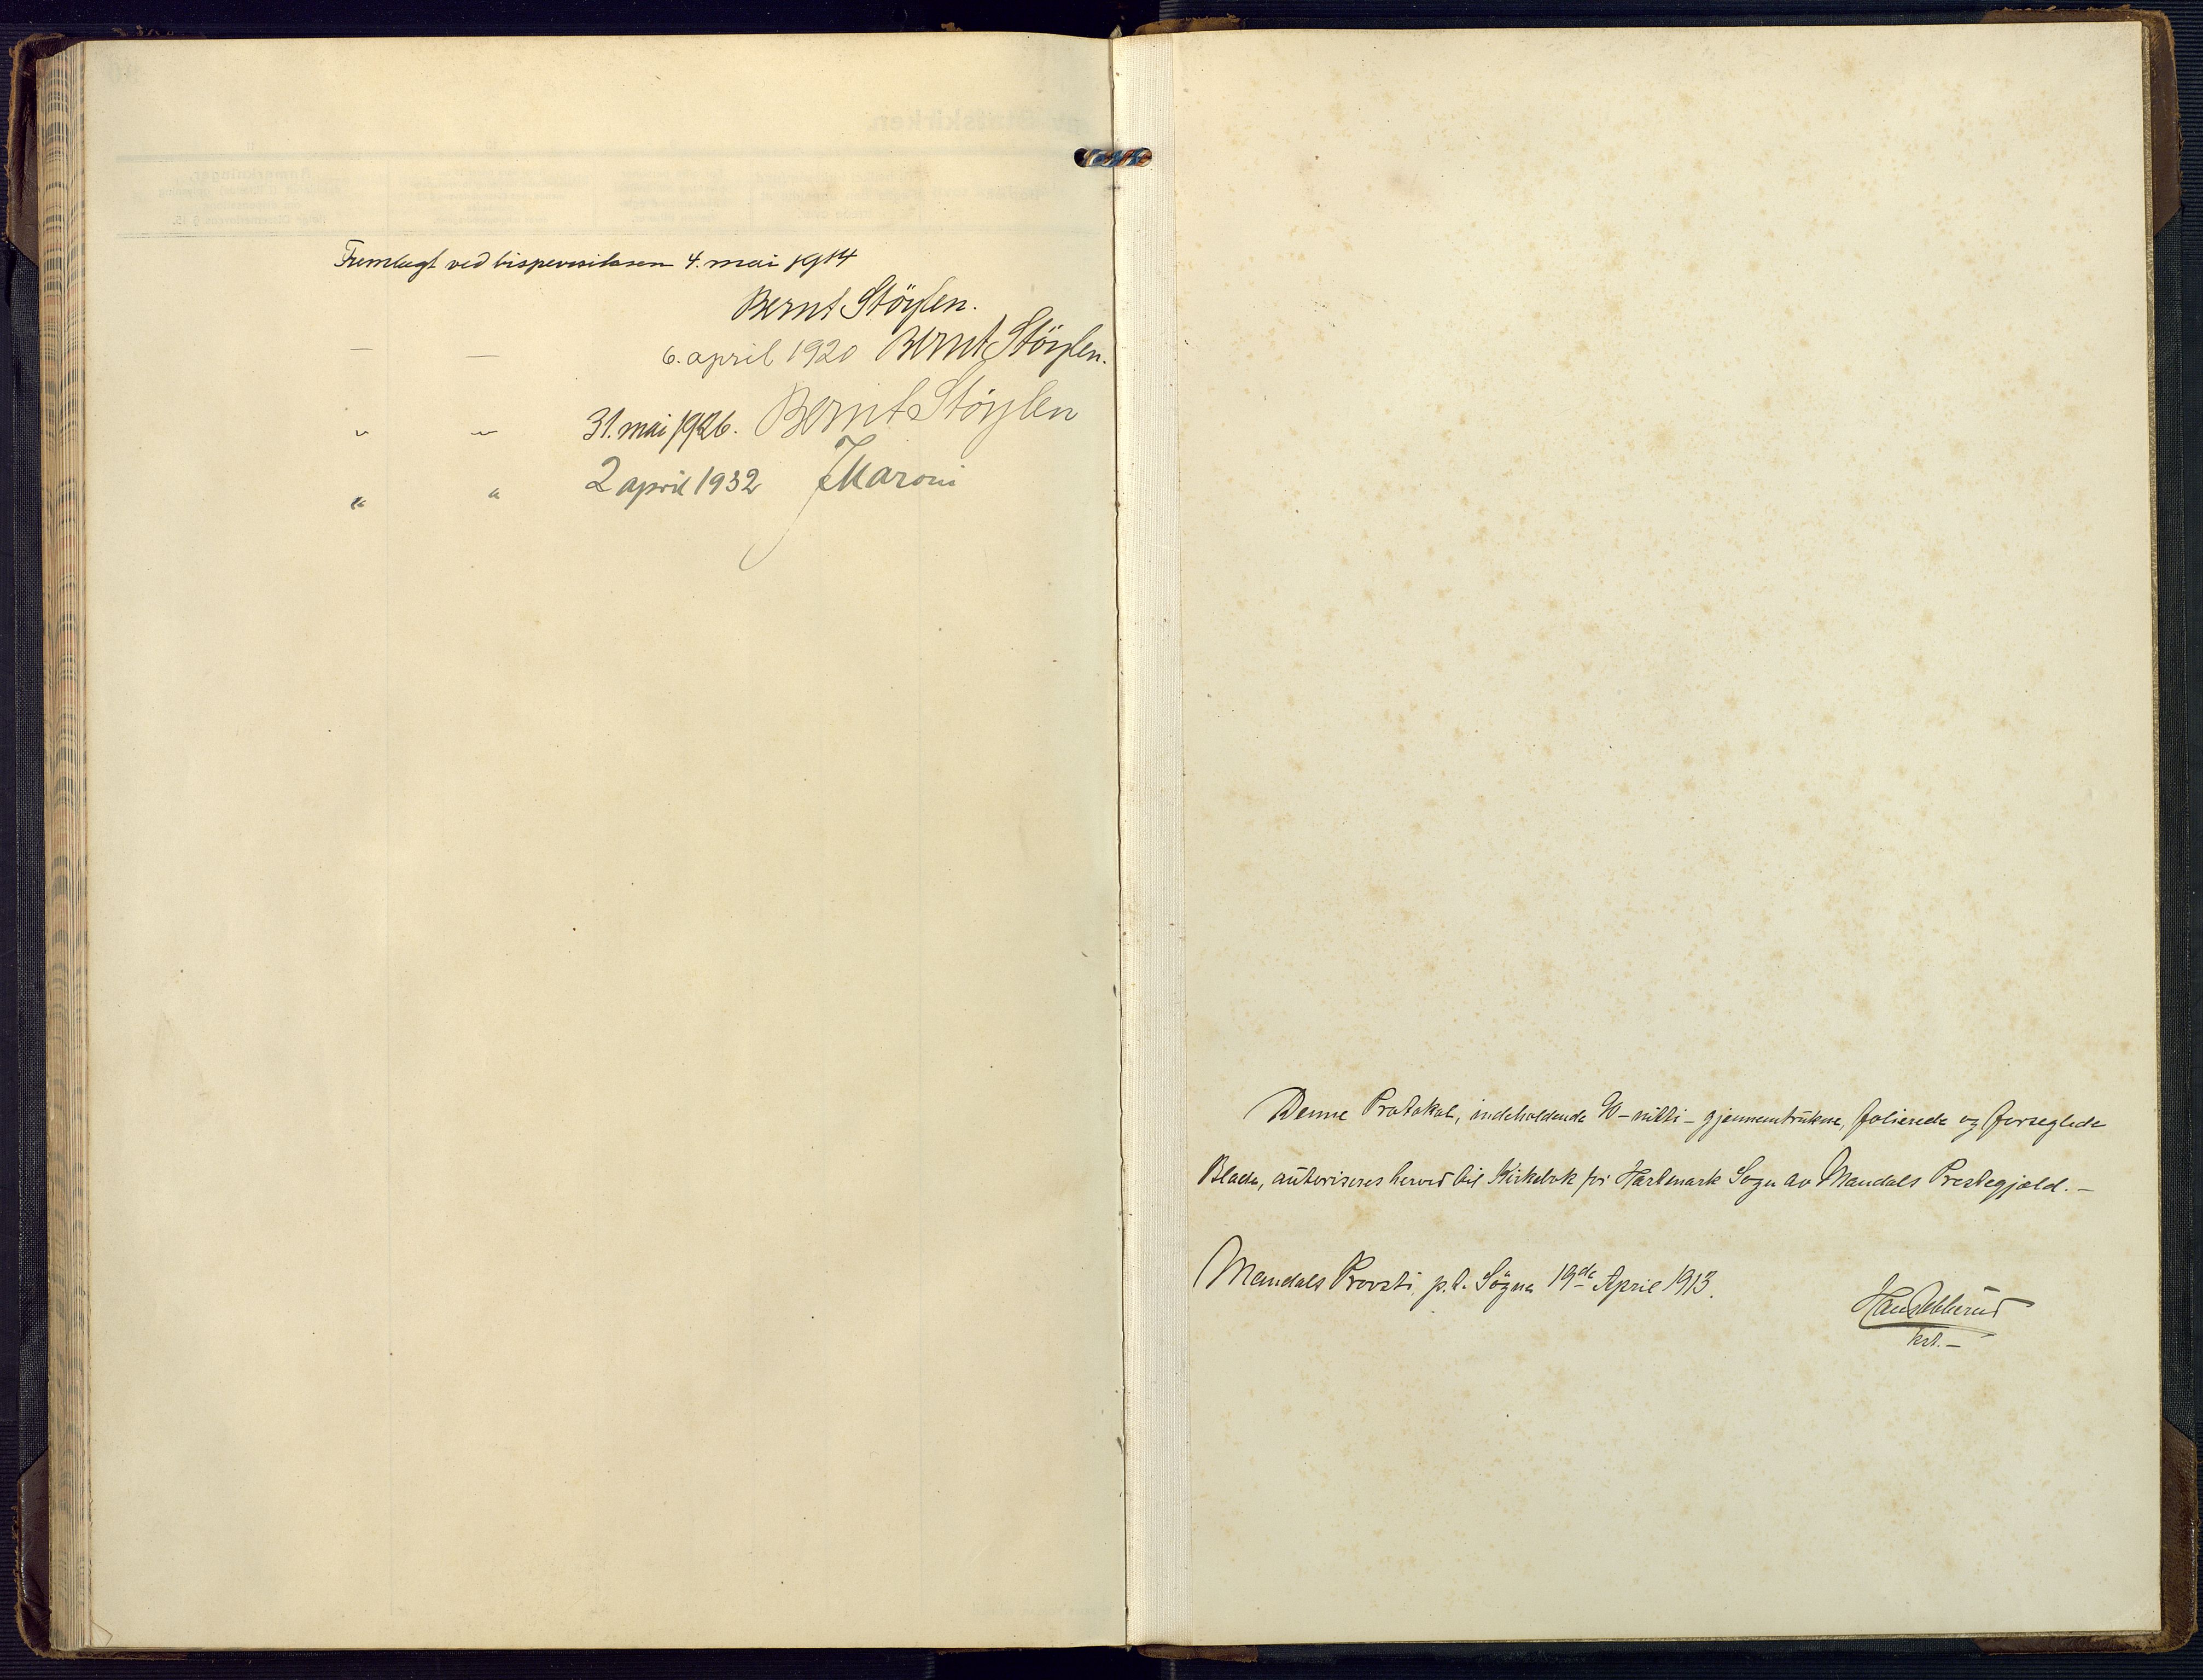 Fremlagt ved bispevisitasen 4. mai 1914
Bernt Støylen.
— — 6. april 1920 Bernt Støylen.
" " 31. mai 1926. Bernt Støylen
" " 2 april 1932 J Maroni
Denne Protokol, indeholdende 90 – nitti – gjennemtrukne, folierede og forseglede
Blade, autoriseres herved til Kirkebok for Hartmark Sogn av Mandals Prestegjæld. –
Mandals Provsti p.t. Søgne 19de April 1913.
kst. –